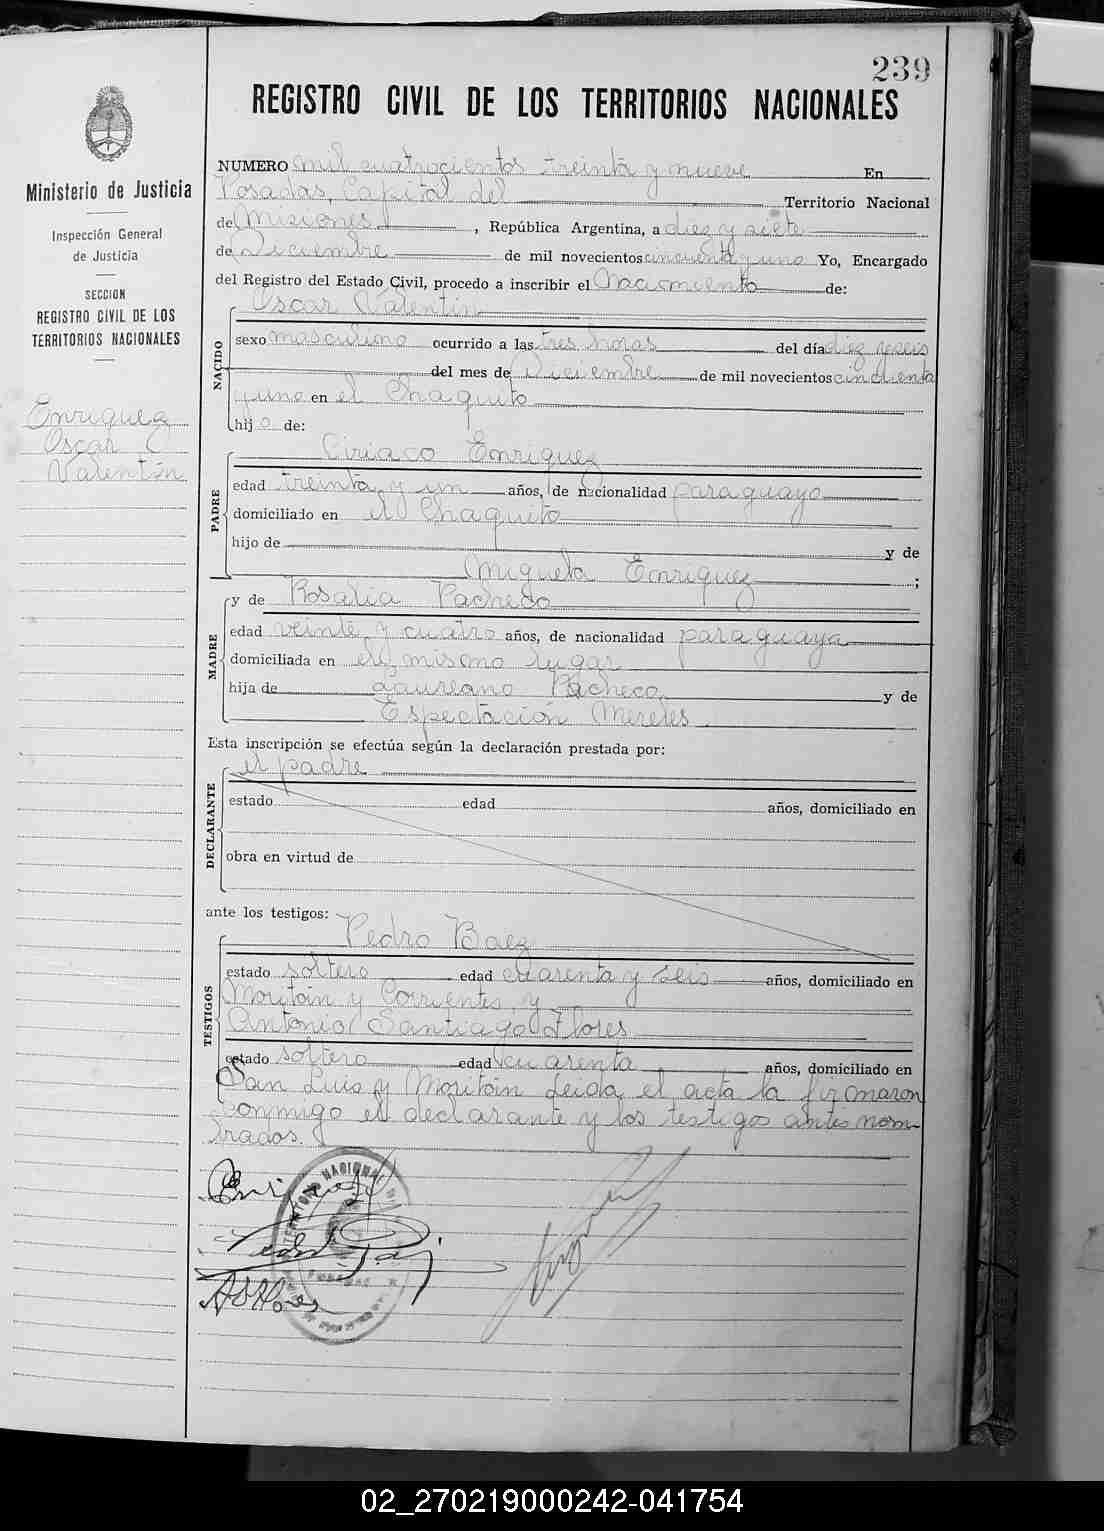 239
REGISTRO CIVIL DE LOS TERRITORIOS NACIONALES
Ministerio de Justicia
Inspección General
de Justicia
SECCION
REGISTRO CIVIL DE LOS
TERRITORIOS NACIONALES
Enriquez
Oscar
Valentín
NUMERO mil cuatrocientos treinta y nueve En
Posadas, Capital del Territorio Nacional
de Misiones, República Argentina, a diez y siete
de Diciembre de mil novecientos cincuenta y uno Yo, Encargado
del Registro del Estado Civil, procedo a inscribir el Nacimiento de:
NACIDO
Oscar Valentín
sexo masculino ocurrido a las tres horas del día diez y seis
del mes de Diciembre de mil novecientos cincuenta
y uno en el Chaquito
hijo de:
PADRE
Ciriaco Enriquez
edad treinta y un años, de nacionalidad paraguayo
domiciliado en el Chaquito
hijo de y de
Miguela Enriquez ;
MADRE
y de Rosalia Pacheco
edad veinte y cuatro años, de nacionalidad paraguaya
domiciliada en el mismo lugar
hija de Laureano Pacheco y de
Espectación Mereles
Esta inscripción se efectúa según la declaración prestada por:
DECLARANTE
el padre
estado edad años, domiciliado en
obra en virtud de
ante los testigos:
TESTIGOS
Pedro Baez
estado soltero edad cuarenta y seis años, domiciliado en
y Corrientes y
Antonio Santiago Flores
estado soltero edad cuarenta años, domiciliado en
San Luis y Leida el acta la firmaron
conmigo el declarante y los testigos antes nom-
brados.
TERRITORIO NACIONAL
POSADAS
02_270219000242-041754